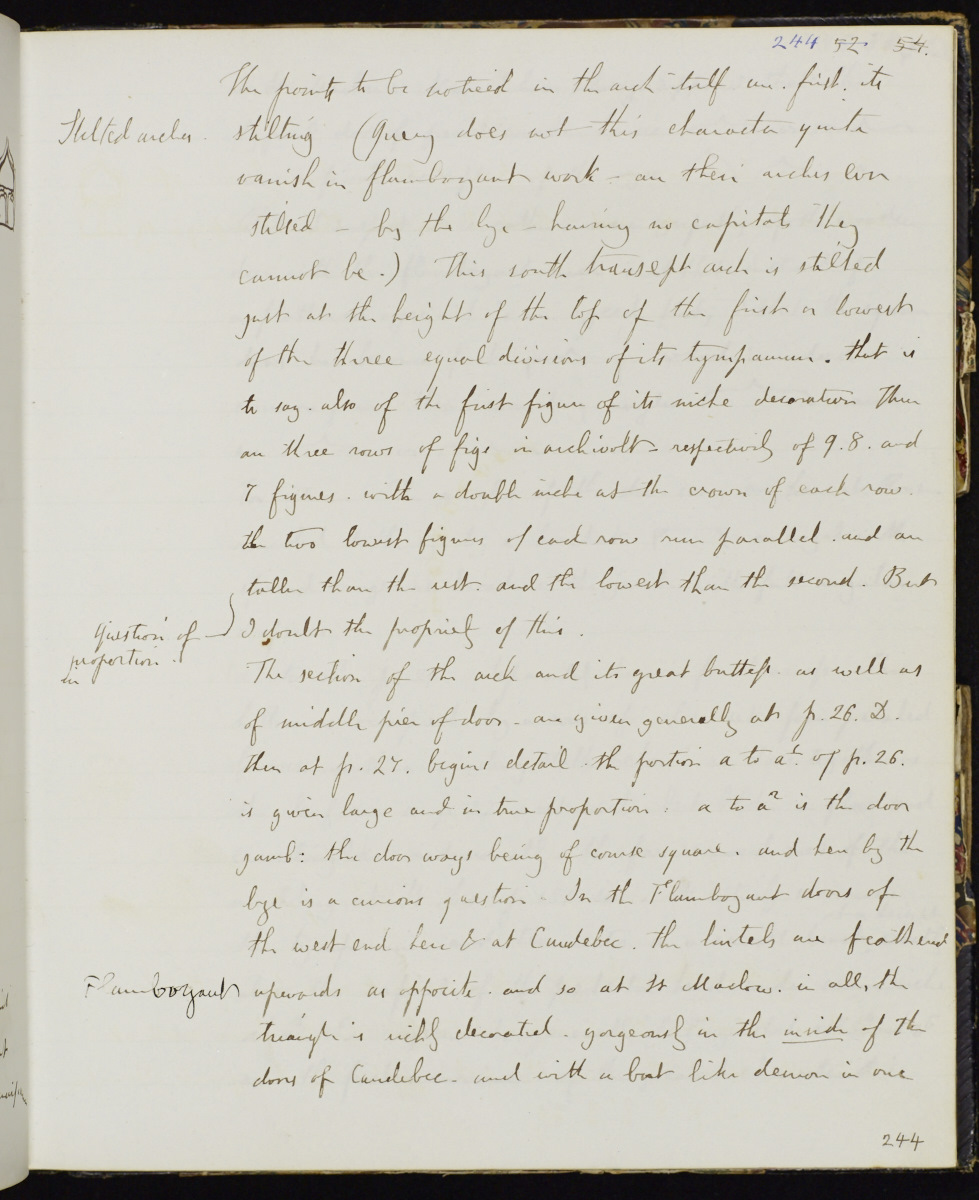 244 52 54.
The points to be noticed in the arch itself are. first. its
Stilted arches. stilting (Query does not this character quite
vanish in flamboyant work - are their arches ever
stilted - by the bye - having no capitals they
cannot be.) This south transept arch is stilted
just at the height of the top of the first or lowest
of the three equal divisions of its tympanum. that is
to say. also of the first figure of its niche decoration There
are three rows of figs in archivolt - respectively of 9. 8. and
7 figures. with a double niche at the crown of each row.
the two lowest figures of each row run parallel. and are
taller than the rest. and the lowest than the second. But
Question of proportion. I doubt the propriety of this.
in
The section of the arch and its great buttess. as well as
of middle pier of door - are given generally at p. 26. D.
then at p. 27. begins detail. the portion a to a2. of p. 26.
is given large and in true proportion. a to a2 is the door
jamb: the door ways being of course square. and here by the
bye is a curious question. In the Flamboyant doors of
the west end here & at Caudebec. the lintels are feathered
Flamboyant upwards as opposite. and so at St Maclow. in all, the
triangle is richly decorated. gorgeously in the inside of the
doors of Caudebec - and with a bat like demon in one
244